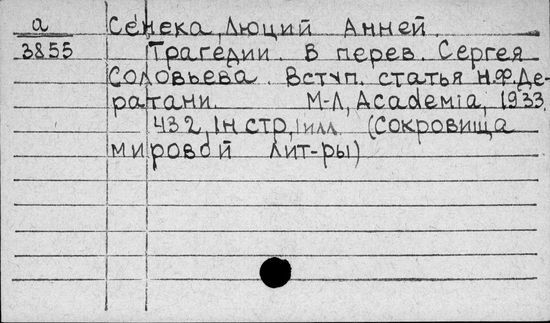 а
3855
Сенека, Люций Анней.
Трагедии. В перев. Сергея
Соловьева. Вступ. статья Н.Ф.Де-
ратани. М-Л, Academia, 1933.
432, Iн стр, Iилл. (Сокровища
мировой лит-ры)